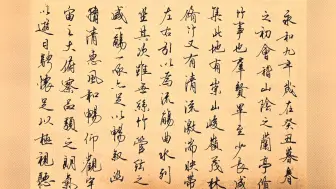 永和九年歲在癸丑暮春
之初會稽山陰之蘭亭脩
禊事也羣賢畢至少長咸
集此地有崇山峻嶺茂林
脩竹又有清流激湍映帶
左右引以為流觴曲水列
坐其次雖無絲竹管絃之
盛一觴一詠亦足以暢敘幽
清惠風和暢仰觀宇
宙之大俯察品類之
以遊目騁懷足以極視聽